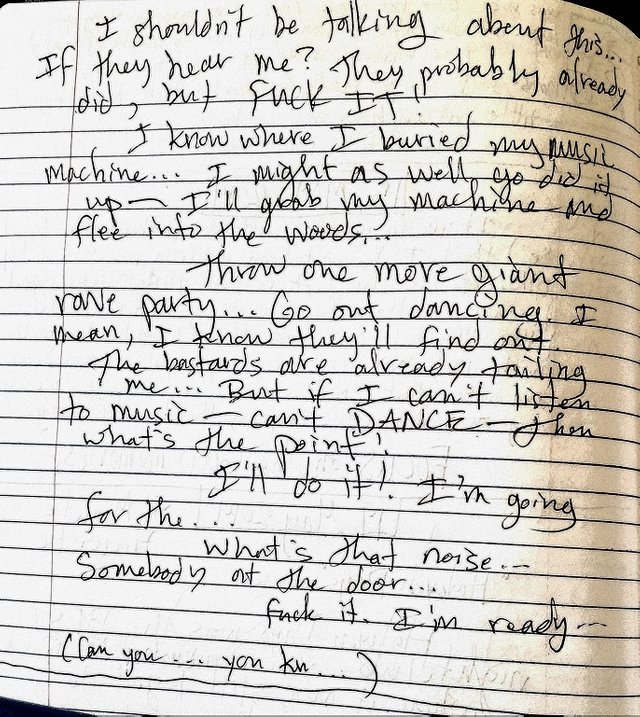 I shouldn't be talking about this...
If they hear me? They probably already
did, but FUCK IT!
I know where I buried my music
machine... I might as well go did it
up — I'll grab my machine and
flee into the woods...
Throw one more giant
rave party... Go out dancing. I
mean, I know they'll find out.
The bastards are already tailing
me... But if I can't listen
to music — can't DANCE — then
what's the point!
I'll do it! I'm going
for the....
What's that noise...
Somebody at the door...
Fuck it. I'm ready...
(Can you... you kn...)